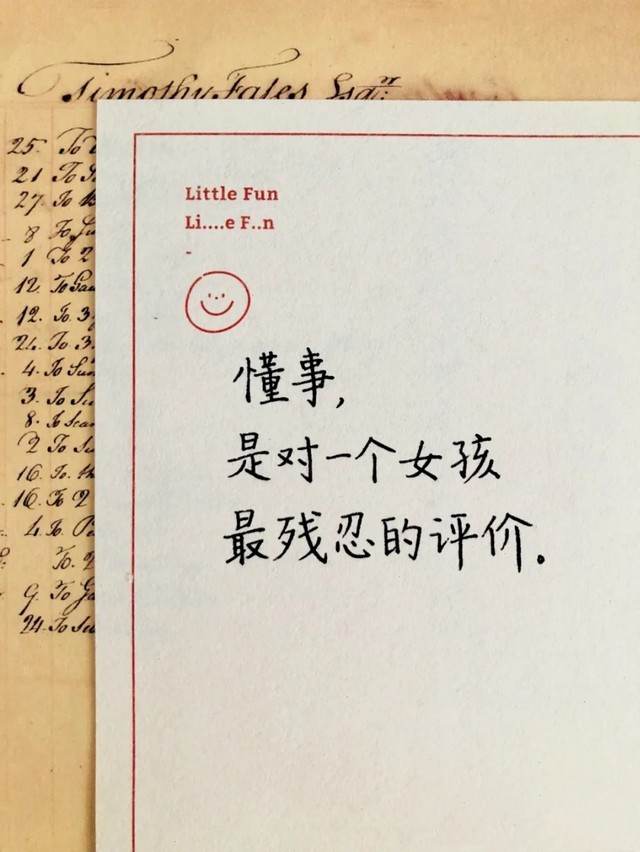 Timothy Fales Esqr:
25. To
21 To
27. To
8 To
1 To 2
12. To
12. To 3
24. To 3
4. To
3. To
8. To
2 To
16. To. th
16. To 2
4. To
To. 2
9. To
24. To
Little Fun
Li....e F..n
-
懂事,
是对一个女孩
最残忍的评价.